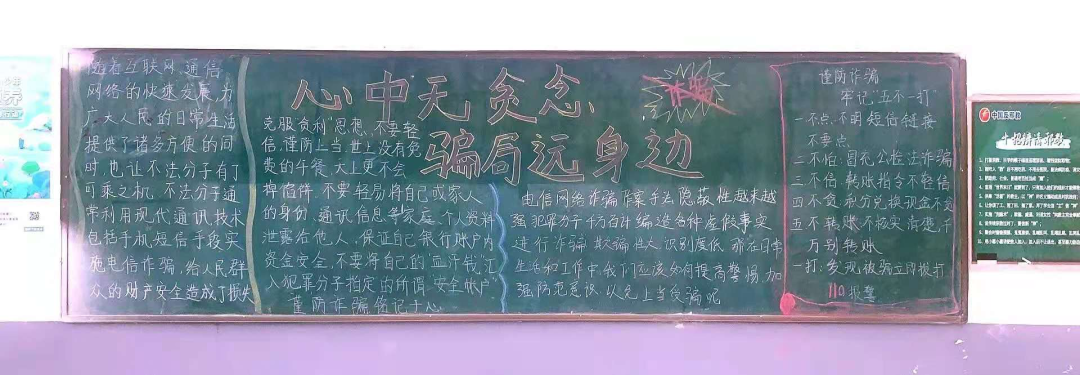 随着互联网、通信
网络的快速发展,为
广大人民的日常生活
提供了诸多方便的同
时,也让不法分子有了
可乘之机,不法分子通
常利用现代通讯技术
包括手机短信手段实
施电信诈骗,给人民群
众的财产安全造成了损失
心中无贪念
骗局远身边
诈骗
克服贪利"思想,不要轻
信,谨防上当,世上没有免
费的午餐,天上更不会
掉馅饼,不要轻易将自己或家人
的身份、通讯信息等家庭、个人资料
泄露给他人,保证自己银行账户内
资金安全,不要将自己的"血汗钱"汇
入犯罪分子指定的所谓"安全帐户"
谨防诈骗铭记于心
电信网络诈骗作案手法隐蔽性越来越
强,犯罪分子千方百计编造各种虚假事实
进行诈骗,欺骗性大,识别度低,那在日常
生活和工作中,我们应该如何提高警惕,加
强防范意识,以免上当受骗呢
谨防诈骗
牢记"五不一打"
一不点,不明短信链接
不要点
二不怕:冒充公检法诈骗
三不信:转账指令不轻信
四不贪,积分兑换现金不贪
五不转账,不核实清楚,千
万别转账
一打:发现被骗立即拨打
110报警
中国反邪教